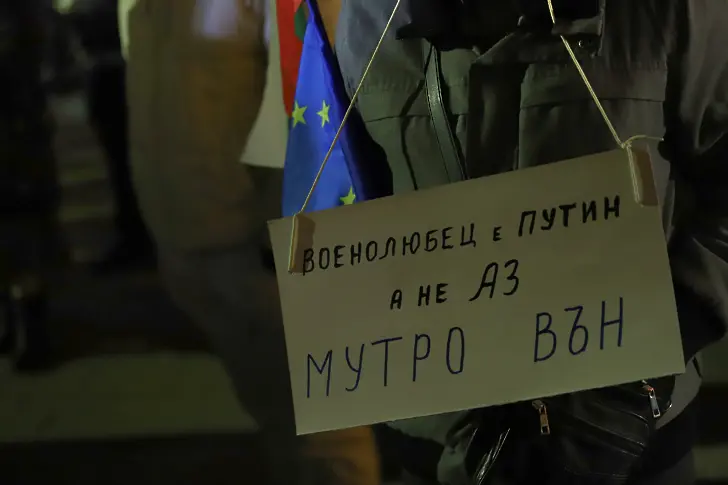 ВОЕНОЛЮБЕЦ е ПУТИН
А НЕ АЗ
МУТРО ВЪН